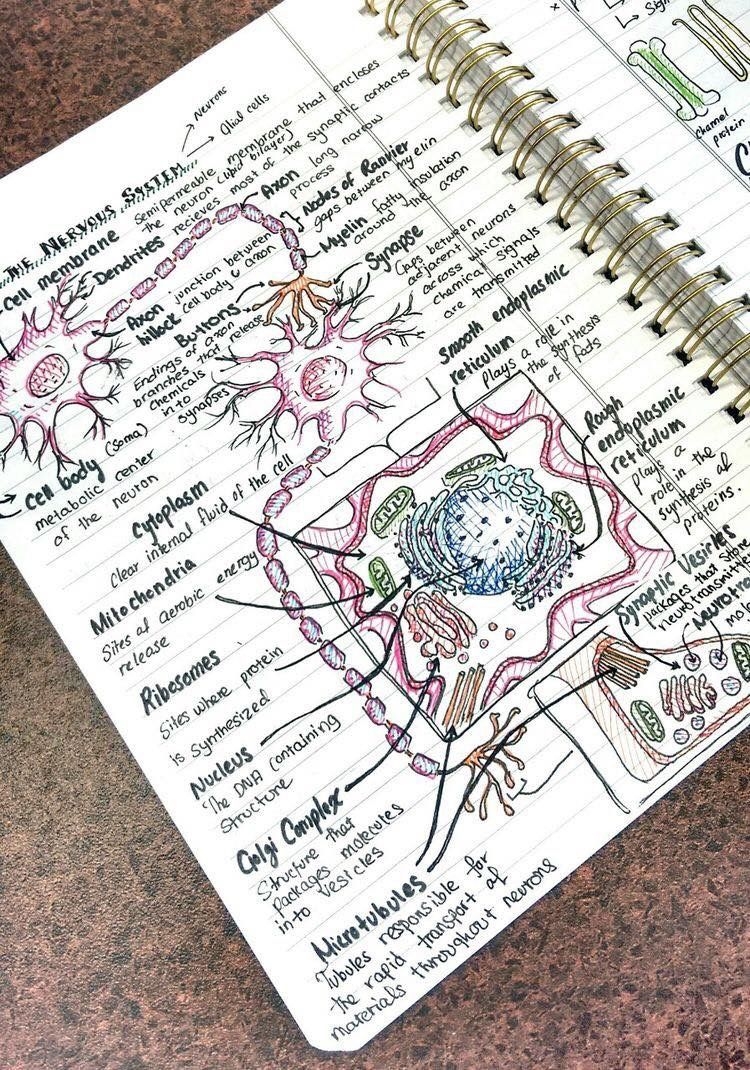 THE NERVOUS SYSTEM
Neurons
Glial cells
Cell membrane
Semipermeable membrane that encloses
the neuron (lipid bilayer)
Dendrites
recieves most of the synaptic contacts
Axon
long narrow
process
Nodes of Ranvier
gaps between myelin
Myelin
fatty insulation
around the axon
Axon
hillock
junction between
cell body & axon
Buttons
Endings of axon
branches that release
chemicals
into
synapses
Synapse
Gaps between
adjacent neurons
across which
chemical signals
are transmitted
Cell body (soma)
metabolic center
of the neuron
Smooth endoplasmic
reticulum
plays a role in
the synthesis
of fats
Rough
endoplasmic
reticulum
plays a
role in the
synthesis of
proteins.
Cytoplasm
Clear internal fluid of the cell
Mitochondria
Sites of aerobic energy
release
Ribesomes
Sites where protein
is synthesized
Nucleus
The DNA containing
structure
Golgi Complex
Structure that
packages molecules
into vesicles
Microtubules
Tubules responsible for
the rapid transport of
materials throughout neurons
Synaptic Vesicles
packages that store
channel
protein